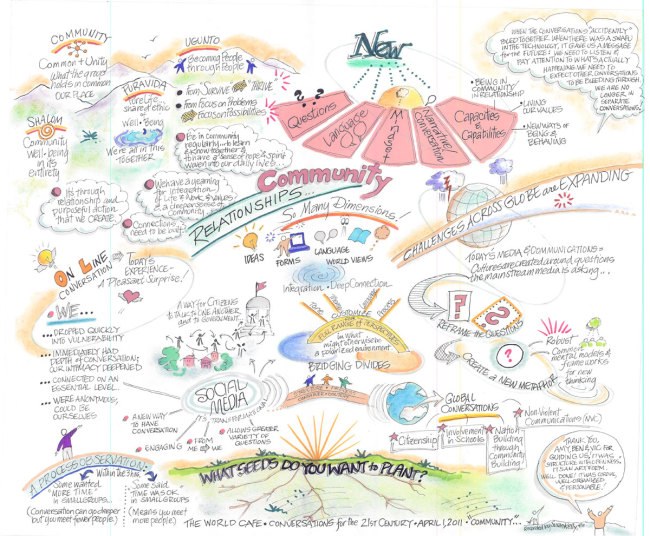 COMMUNITY
Common + Unity
What the group
holds in common
OUR PLACE
SHALOM
Community
Well-being
in its
entirety
PURAVIDA
Pure Life...
share of ethic
of
Well-Being
We're all in this
TOGETHER
UBUNTO
Becoming People
through People
From SURVIVE
to THRIVE
From focus on Problems
to Focus on Possibilities
Be in community
regularly... to learn
& know together &
to have a sense of hope & spirit
woven into our daily lives...
It's through
relationship and
purposeful action
that we CREATE.
We have a yearning
for integration
of Life & Work & Values
& a deeper sense of
Community
Connections
need to be
New
Questions
Language
Narrative/
Conversation
Capacities
&
Capabilities
BEING IN
COMMUNITY
IN RELATIONSHIP
LIVING
OUR VALUES
NEW WAYS OF
BEING &
BEHAVING
WHEN THE CONVERSATIONS "ACCIDENTLY"
BLED TOGETHER WHEN THERE WAS A SNAFU
IN THE TECHNOLOGY, IT GAVE US A MESSAGE
FOR THE FUTURE: WE NEED TO LISTEN &
PAY ATTENTION TO WHAT'S ACTUALLY
HAPPENING. WE NEED TO
EXPECT OTHER CONVERSATIONS
TO BE BLEEDING THROUGH
WE ARE NO
LONGER IN
SEPARATE
CONVERSATIONS.
Community
RELATIONSHIPS...
So Many Dimensions!
IDEAS
FORMS
LANGUAGE
WORLD VIEWS
Integration - Deep Connection
CHALLENGES ACROSS GLOBE are EXPANDING
TODAY'S MEDIA & COMMUNICATIONS =
Cultures are created around questions
the mainstream media is asking...
ON LINE
CONVERSATION
TODAY'S
EXPERIENCE -
A Pleasant Surprise.
WE...
... DROPPED QUICKLY
INTO VULNERABILITY
... IMMEDIATELY HAD
DEPTH OF CONVERSATION;
OUR INTIMACY DEEPENED
... CONNECTED ON AN
ESSENTIAL LEVEL
... WERE ANONYMOUS,
COULD BE
OURSELVES
A WAY FOR CITIZENS
TO TALK TO ONE ANOTHER
and to GOVERNMENT
FULL RANGE of PERSPECTIVES
in what
might otherwise be
a polarized environment
BRIDGING DIVIDES
REFRAME the QUESTIONS
CREATE A NEW METAPHOR
Robust
Common
mental models &
frameworks
for new
thinking
SOCIAL
MEDIA
A NEW WAY
TO HAVE
CONVERSATION
ENGAGING
FROM
ME WE
ALLOWS GREATER
VARIETY OF
QUESTIONS
GLOBAL
CONVERSATIONS
Citizenship
Involvement
in Schools
Nation
Building
through
Community
Building
Non-Violent
Communications (NVC)
A PROCESS OBSERVATION:
Within the Stew
Some wanted
"MORE TIME"
IN SMALL GROUPS...
(Conversation can go deeper
but you meet fewer people.)
Some said
TIME WAS OK
IN SMALL GROUPS
(Means you meet
more people)
WHAT SEEDS DO YOU WANT to PLANT?
THANK YOU,
AMY, BEN & VIC FOR
GUIDING US; IT WAS
STRUCTURE w/ LOOSENESS.
IT'S AN ART FORM.
WELL DONE! IT WAS GREAT,
WELL-ORGANIZED,
& ENJOYABLE!
THE WORLD CAFE • CONVERSATIONS for the 21ST CENTURY • APRIL 1, 2011 • "COMMUNITY"...